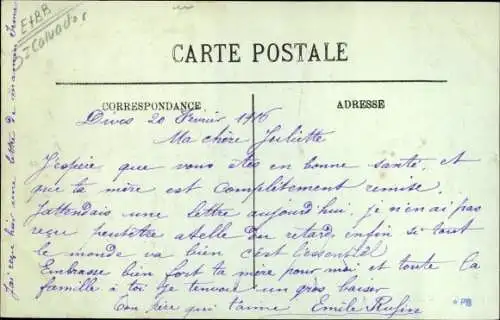 E+BB
Calvados
CARTE POSTALE
CORRESPONDANCE
ADRESSE
Dives 20 Fevrier 1916
Ma chère Juliette
J'espère que vous êtes en bonne santé, et
que ta mère est complètement remise.
J'attendais une lettre aujourd'hui je n'en ai pas
reçu peutêtre atelle du retard, enfin si tout
le monde va bien c'est l'essentiel
Embrasse bien fort ta mère pour moi et toute la
famille à toi je tenvoie un gros baiser
Ton père qui t'aime Emile
J'ai reçu hier une lettre de maman
PB